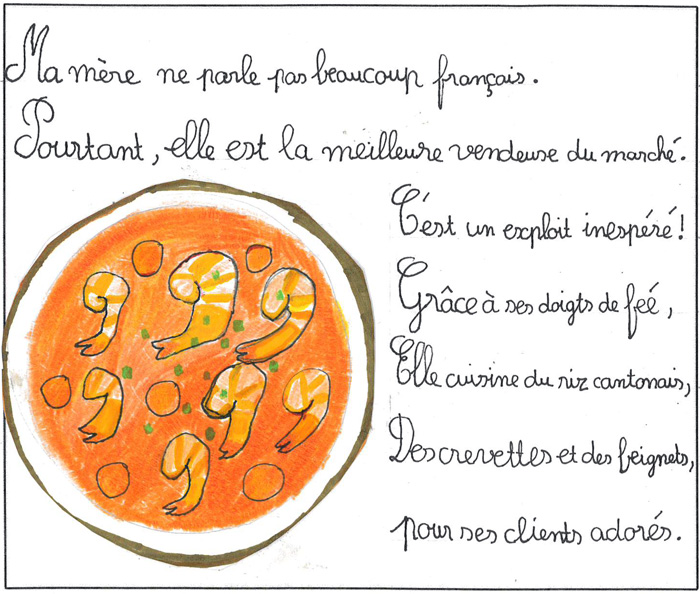 Ma mère ne parle pas beaucoup français.
Pourtant, elle est la meilleure vendeuse du marché.
C'est un exploit inespéré!
Grâce à ses doigts de feé,
Elle cuisine du riz cantonais,
Des crevettes et des beignets,
pour ses clients adorés.